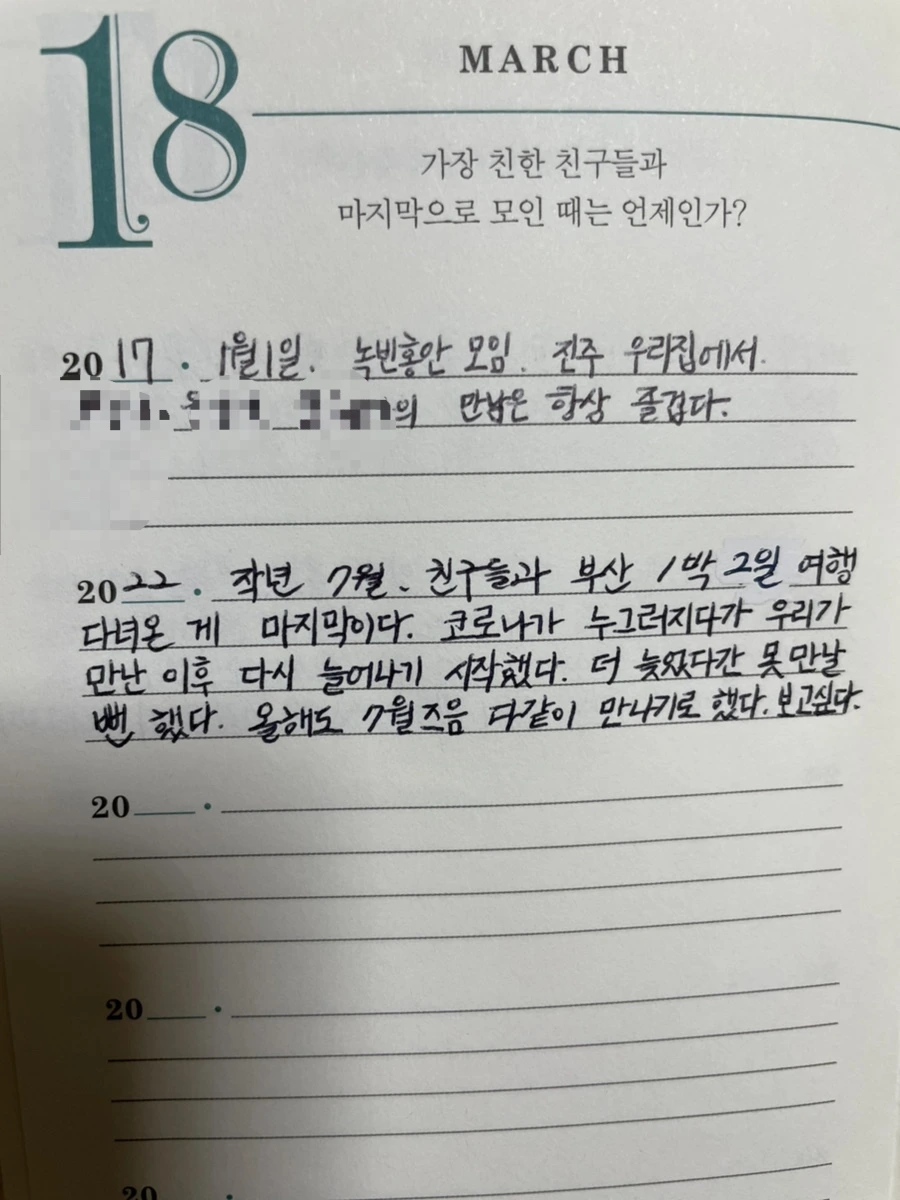 18
MARCH
가장 친한 친구들과
마지막으로 모인 때는 언제인가?
2017 · 1월1일. 녹빈홍안 모임. 진주 우리집에서.
의 만남은 항상 즐겁다.
2022 · 작년 7월. 친구들과 부산 1박 2일 여행
다녀온 게 마지막이다. 코로나가 누그러지다가 우리가
만난 이후 다시 늘어나기 시작했다. 더 늦었다간 못만날
뻔 했다. 올해도 7월즈음 다같이 만나기로 했다. 보고싶다.
20 ·
20 ·
20